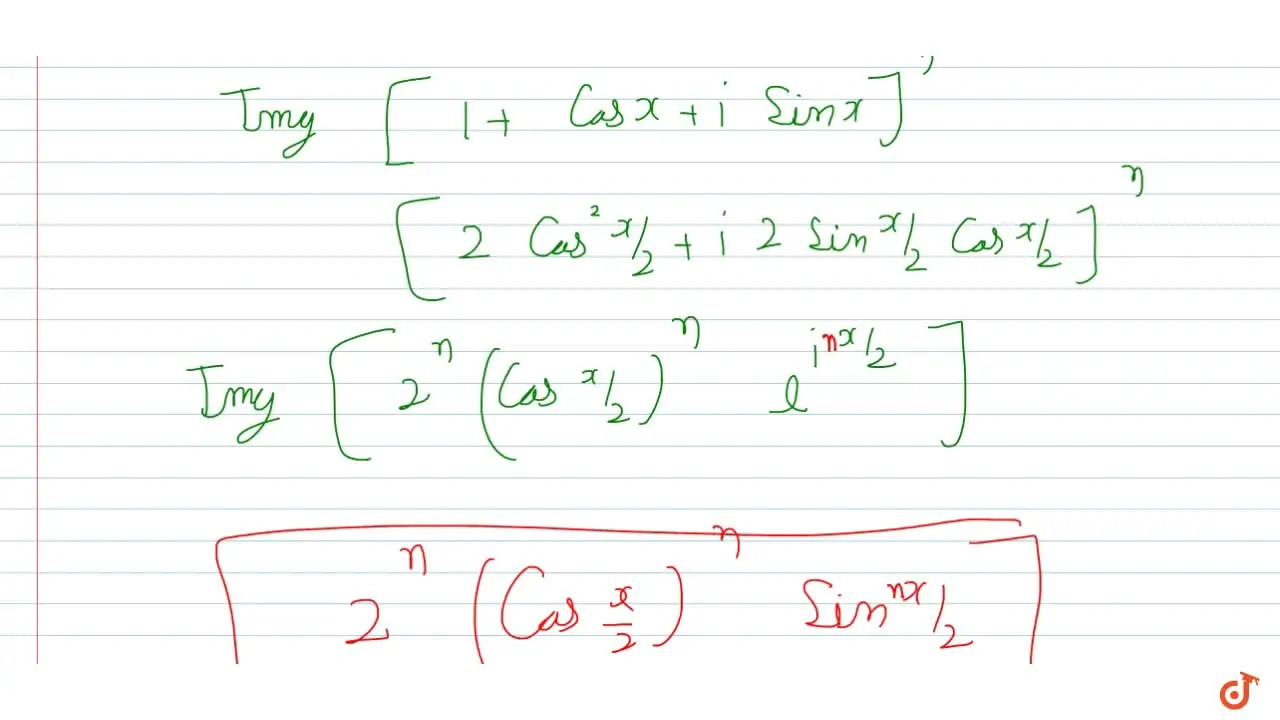 Img [ 1 + Cos x + i Sin x ]
[ 2 Cos² x/2 + i 2 Sin x/2 Cos x/2 ]ⁿ
Img [ 2ⁿ (Cos x/2)ⁿ e^{i n x/2} ]
2ⁿ (Cos x/2)ⁿ Sin nx/2